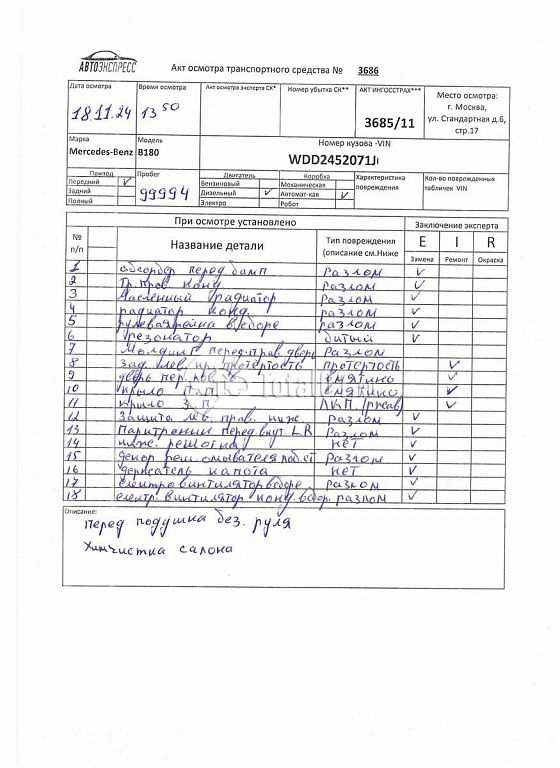 АВТОЭКСПРЕСС
Акт осмотра транспортного средства № 3686
Дата осмотра Время осмотра Акт осмотра эксперта СК* Номер убытка СК** АКТ ИНГОССТРАХ*** Место осмотра:
18.11.24 13 50 3685/11 г. Москва, ул. Стандартная д.6, стр.17
Марка Модель Номер кузова -VIN
Mercedes-Benz B180 WDD2452071J
Привод Пробег Двигатель Коробка Характеристика повреждения Кол-во поврежденных табличек VIN
Передний ✓ 99994 Бензиновый Механическая
Задний Дизельный ✓ Автомат-кая ✓
Полный Электро Робот
При осмотре установлено Заключение эксперта
№ п/п Название детали Тип повреждения (описание см.Ниже E I R
Замена Ремонт Окраска
1 абсорбер перед бамп разлом ✓
2 Тр. прав конд разлом ✓
3 Масленный радиатор разлом ✓
4 радиатор конд. разлом ✓
5 рулевая рейка в сборе разлом ✓
6 резонатор битый ✓
7 Молдинг перед. прав дверь разлом
8 зад лев. протертость протертость ✓
9 дверь пер. вмятино ✓
10 крыло П П вмятино ✓
11 крыло З п ЛКП (ржав) ✓
12 защита лв. прав. ниж. разлом ✓
13 перед. внут. LR разлом ✓
14 ниж. решотка нет ✓
15 декор реш. омывателя лоб. ст разлом ✓
16 держатель капота нет ✓
17 електро винтилятор в сборе разлом ✓
18 електр. винтилятор конд. в сбор. разлом ✓
Описание:
перед подушка без. руля
Химчистка салона